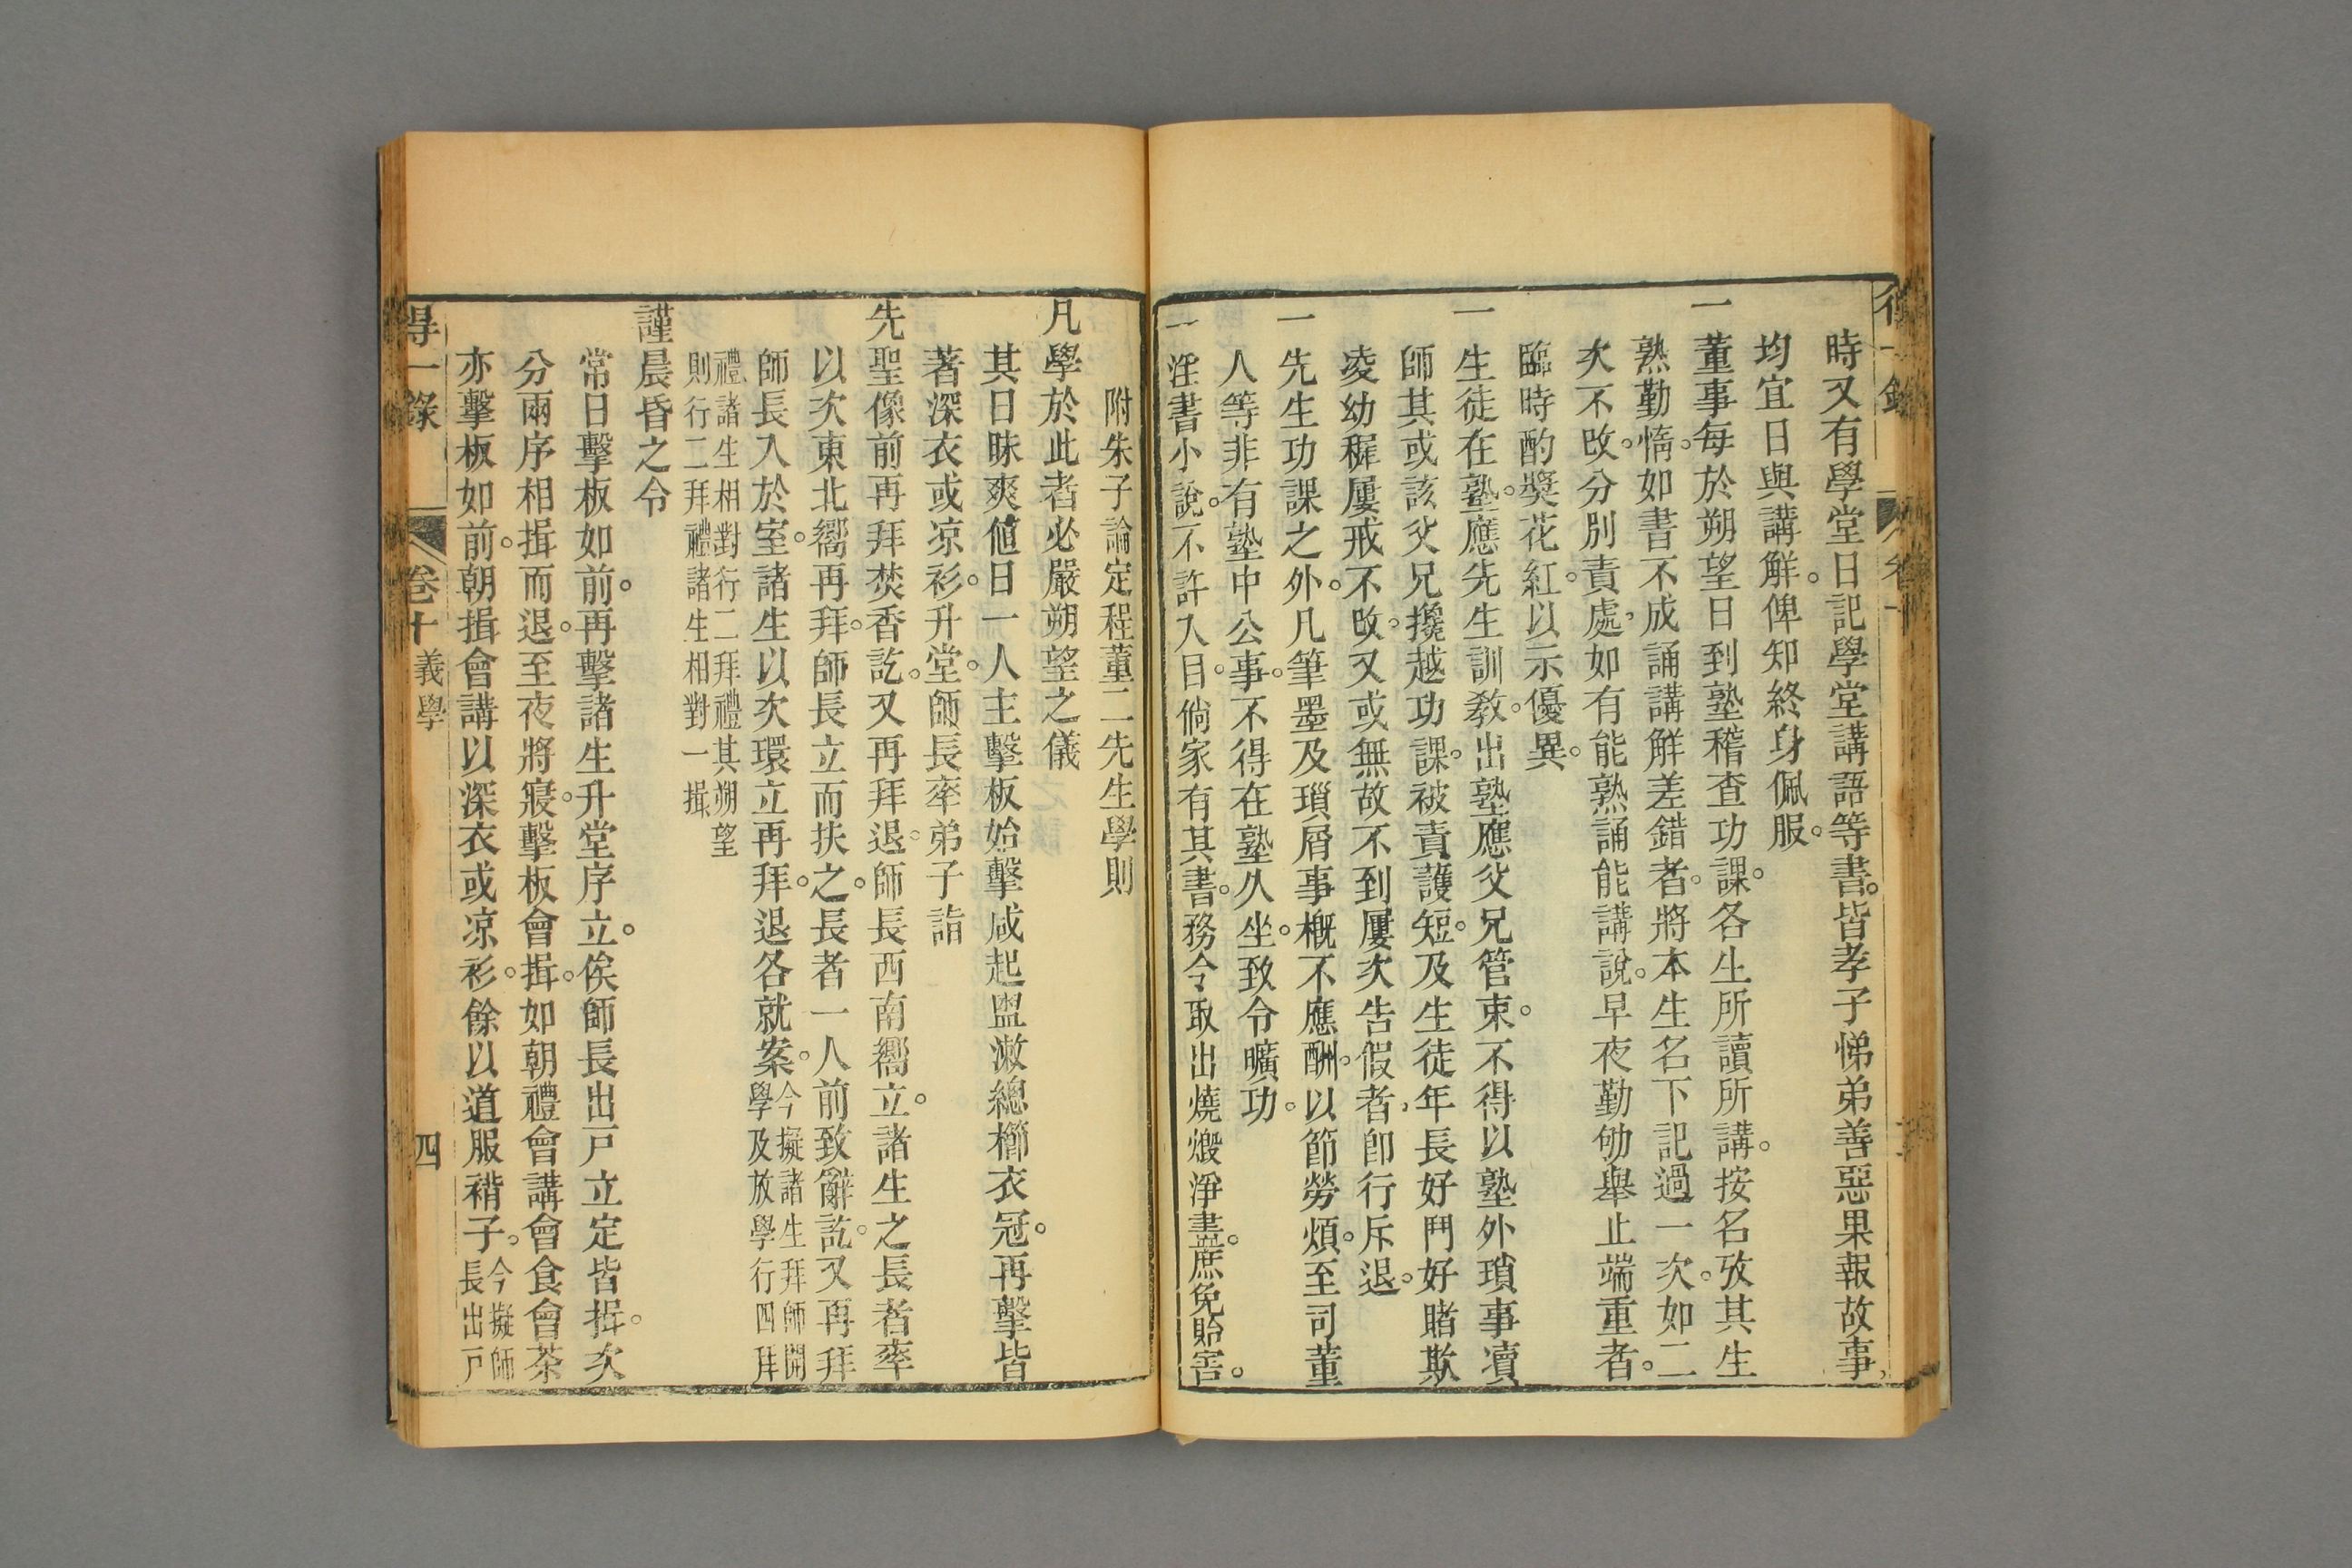 時又有學堂日記學堂講語等書。皆孝子悌弟善惡果報故事、
均宜日與講解。俾知終身佩服。
一董事每於朔望日到塾稽查功課。各生所讀所講。按名攷其生
熟勤惰。如書不成誦講解差錯者。將本生名下記過一次。如二
次不改。分別責處、如有能熟誦能講說。早夜勤劬舉止端重者。
臨時酌獎花紅。以示優異。
一生徒在塾。應先生訓教。出塾應父兄管束。不得以塾外瑣事凟
師其或該父兄攙越功課。被責護短。及生徒年長好鬥好賭欺
凌幼穉屢戒不改。又或無故不到屢次告假者、卽行斥退。
一先生功課之外。凡筆墨及瑣屑事槪不應酬。以節勞煩。至司董
人等非有塾中公事。不得在塾久坐。致令曠功。
一淫書小說。不許入目。倘家有其書。務令取出燒燬淨盡。庶免貽害。
附朱子論定程董二先生學則
凡學於此者必嚴朔望之儀
其日昧爽値日一人主擊板始擊咸起盥漱總櫛衣冠。再擊皆
著深衣或凉衫。升堂。師長率弟子詣
先聖像前再拜焚香訖。又再拜退。師長西南嚮立。諸生之長者率
以次東北嚮再拜。師長立而扶之。長者一人前致辭訖。又再拜
師長入於室。諸生以次環立再拜。退各就案。今擬諸生拜師開
學及放學行四拜
禮諸生相對行二拜禮其朔望
則行二拜禮諸生相對一揖
謹晨昏之令
常日擊板如前。再擊諸生升堂序立。俟師長出戸立定皆揖。次
分兩序相揖而退。至夜將寢。擊板會揖。如朝禮會講會食會茶
亦擊板如前。朝揖會講以深衣或凉衫。餘以道服褙子。今擬師
長出戸
得一錄
卷十
義學
四